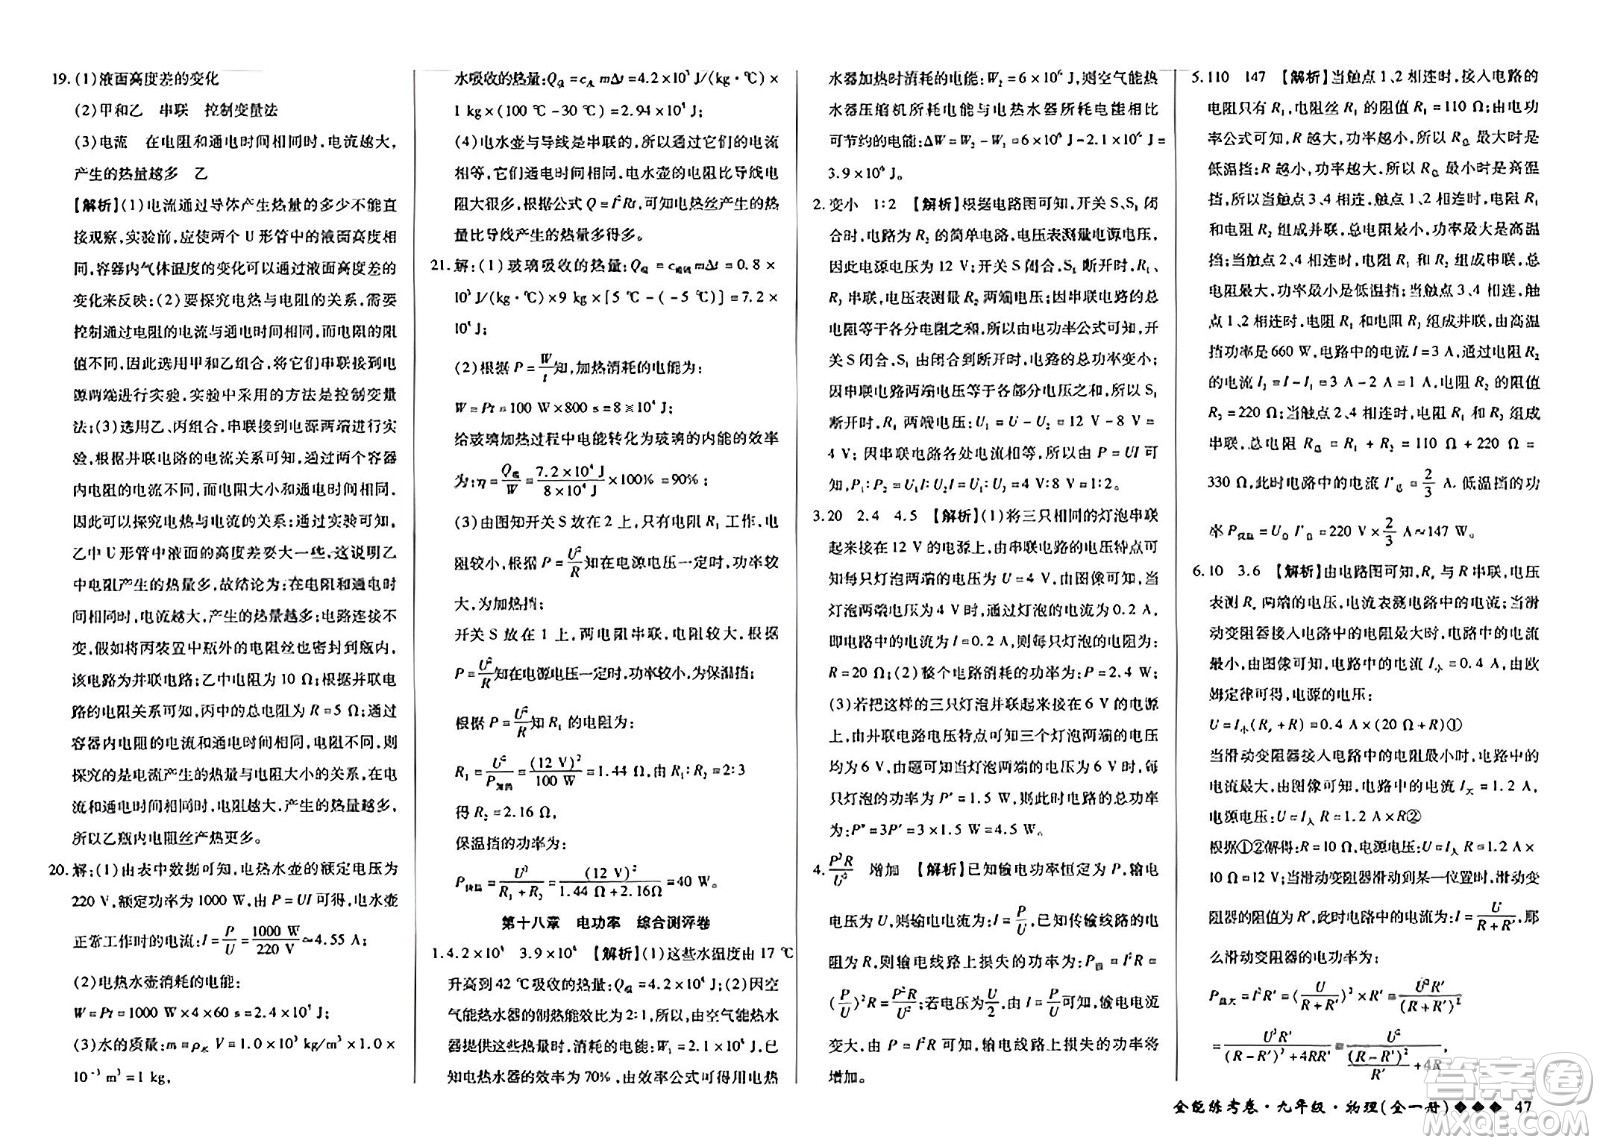 19. (1)液面高度差的变化
(2)甲和乙 串联 控制变量法
(3)电流 在电阻和通电时间相同时,电流越大,
产生的热量越多 乙
【解析】(1)电流通过导体产生热量的多少不能直
接观察,实验前,应使两个 U 形管中的液面高度相
同,容器内气体温度的变化可以用液面高度差的
变化来反映;(2)要探究电热与电阻的关系,需要
控制通过电阻的电流与通电时间相同,而电阻的阻
值不同,因此选用甲和乙组合,将它们串联接到电
源两端进行实验,实验中采用的方法是控制变量
法;(3)选用乙、丙组合,串联接到电源两端进行实
验,根据并联电路的电流关系可知,这两个容器
内电阻的电流不同,而电阻大小和通电时间相同,
因此可以探究电热与电流的关系;通过实验可知,
乙中 U 形管中液面的高度差要大一些,这说明乙
中电阻产生的热量多,故结论为:在电阻和通电时
间相同时,电流越大,产生的热量越多;电路连接
有误,如将丙装置中瓶外的电阻丝也串到瓶内,
该电路为并联电路;乙中电阻为 10 Ω;根据并联电
路的电阻关系可知,丙中的总电阻为 R=5 Ω;通过
容器内电阻的电流与通电时间相同,电阻不同,则
探究的是电流产生的热量与电阻大小的关系,在电
流和通电时间相同时,电阻越大,产生的热量越多,
所以乙瓶内电阻丝产热更多。
20. 解:(1)由表中数据可知,电热水壶的额定电压为
220 V,额定功率为 1000 W,由 P = UI 可得,电水壶
正常工作时的电流:I = P/U = 1000 W/220 V ≈ 4.55 A;
(2)电热水壶消耗的电能:
W = Pt = 1000 W×4×60 s = 2.4×10⁵ J;
(3)水的质量:m = ρ水 V = 1.0×10³ kg/m³×1.0×
10⁻³ m³ = 1 kg,
水吸收的热量:Q吸 = c水 mΔt = 4.2×10³ J/(kg·℃)×
1 kg×(100 ℃ - 30 ℃) = 2.94×10⁵ J;
(4)电水壶与导线是串联的,通过它们的电流
相等,它们通电时间相同,电水壶的电阻比导线电
阻大得多,根据公式 Q = I²Rt,可知电热丝产生的热
量比导线产生的热量多得多。
21. 解:(1)玻璃吸收的热量:Q吸 = c玻璃 mΔt = 0.8×
10³ J/(kg·℃)×9 kg×[5 ℃ -(-5 ℃)] = 7.2×
10⁴ J;
(2)根据 P = W/t 知,加热消耗的电能为:
W = Pt = 100 W×800 s = 8×10⁴ J,
给玻璃加热过程中电能转化为玻璃的内能的效率
为:η = Q吸/W = 7.2×10⁴ J/8×10⁴ J ×100% = 90%;
(3)由图知开关 S 放在 2 上,只有电阻 R₁ 工作,电
阻较小,根据 P = U²/R 知在电源电压一定时,功率较
大,为加热挡;
开关 S 放在 1 上,两电阻串联,电阻较大,根据
P = U²/R 知在电源电压一定时,功率较小,为保温挡;
根据 P = U²/R 知 R₁ 的电阻为:
R₁ = U²/P加热 = (12 V)²/100 W = 1.44 Ω,由 R₁∶R₂ = 2∶3
得 R₂ = 2.16 Ω,
保温挡的功率为:
P保温 = U²/(R₁ + R₂) = (12 V)²/(1.44 Ω+2.16Ω) = 40 W。
第十八章 电功率 综合测评卷
1. 4.2×10⁶ 3.9×10⁶ 【解析】(1)这些水温度由 17 ℃
升高到 42 ℃ 吸收的热量:Q吸 = 4.2×10⁶ J;(2)因空
气能热水器的制热能效比为 2∶1,所以,由空气能热水
器提供这些热量时,消耗的电能:W₁ = 2.1×10⁶ J;已
知电热水器的效率为 70%,由效率公式可得,电热
水器加热时消耗的电能:W₂ = 6×10⁶ J,则空气能热
水器压缩机所耗电能与电热水器所耗电能相比
可节约的电能:ΔW = W₂ - W₁ = 6×10⁶ J - 2.1×10⁶ J =
3.9×10⁶ J。
2. 变小 1∶2 【解析】根据电路图可知,开关 S、S₁ 闭
合时,电路为 R₂ 的简单电路,电压表测电源电压,
因此电源电压为 12 V;开关 S 闭合、S₁ 断开时,R₁、
R₂ 串联,电压表测量 R₂ 两端电压,因串联电路的总
电阻等于各分电阻之和,所以由电功率公式可知,
开关 S 闭合,S₁ 由闭合到断开时,电路的总功率变小;
因串联电路两端电压等于各部分电压之和,所以 S₁
断开时,R₁ 两端电压:U₁ = U - U₂ = 12 V - 8 V =
4 V,因串联电路各处电流相等,所以由 P = UI 可
知,P₁∶P₂ = U₁I∶U₂I = U₁∶U₂ = 4 V∶8 V = 1∶2。
3. 20 2.4 4.5 【解析】(1)将三只相同的灯泡串联
起来接在 12 V 的电源上,由串联电路的电压特点可
知每只灯泡两端的电压为 4 V,由图像可知,当
灯泡两端电压为 4 V 时,通过灯泡的电流为 0.2 A,
即电路中的电流为 I = 0.2 A,则每只灯泡的电阻为:
R = 20 Ω;(2)整个电路消耗的功率为 P = 2.4 W;
(3)若把这样的三只灯泡并联起来接在 6 V 的电源
上,由并联电路电压特点可知三个灯泡两端的电压
均为 6 V,由题可知当灯泡两端的电压为 6 V 时,每
只灯泡的功率为 P′ = 1.5 W,则此时电路的总功率
为:P″ = 3P′ = 3×1.5 W = 4.5 W。
4. P²R/U² 增加 【解析】已知输电功率恒定为 P,输电
电压为 U,则输电电流为 I = P/U,已知传输线路的电
阻为 R,则输电线路上损失的功率为:P损 = I²R =
(P/U)²R = P²R/U²;若电压为 U/2,由 I = P/U 可知,输电电流
变大,由 P = I²R 可知,输电线路上损失的功率将
增加。
5. 110 147 【解析】当触点 1、2 相连时,接入电路的
电阻只有 R₁,电阻丝 R₁ 的阻值 R₁ = 110 Ω;由电功
率公式可知,R 越大,功率越小,所以 R总 最大时是
低温挡;R 越小,功率越大,所以 R总 最小时是高温
挡。当触点 3、4 相连时,触点 1、2 也相连,电阻 R₁
和 R₂ 组成并联,电阻最小,功率最大,所以是高温
挡;触点 2、4 相连时,电阻 R₁ 和 R₂ 组成串联,此时
电阻最大,功率最小,所以是低温挡;触点 3、4 相连时,触
点 1、2 相连时,电阻 R₁ 和 R₂ 组成并联,此时高温
挡功率是 660 W,电路中的电流 I = 3 A,电阻 R₂
的电流 I₂ = I - I₁ = 3 A - 2 A = 1 A,电阻 R₂ 的阻值
R₂ = 220 Ω;当触点 2、4 相连时,电阻 R₁ 和 R₂ 组成
串联,总电阻 R总 = R₁ + R₂ = 110 Ω + 220 Ω =
330 Ω,此时电路中的电流 I′总 = 2/3 A,低温挡的功
率 P低温 = U总 I′总 = 220 V×2/3 A≈147 W。
6. 10 3.6 【解析】由电路图可知,Rₓ 与 R 串联,电压
表测 Rₓ 两端的电压,电流表测电路中的电流;当滑
动变阻器接入电路中的电阻最大时,电路中的电流
最小,由图像可知,电路中的电流 I小 = 0.4 A,由欧
姆定律可得,电源的电压:
U = I小(Rₓ + R) = 0.4 A×(20 Ω + R)①
当滑动变阻器接入电路中的电阻最小时,电路中的
电流最大,由图像可知,电路中的电流 I大 = 1.2 A,
电源电压:U = I大 R = 1.2 A×R②
根据①②解得:R = 10 Ω,电源电压:U = 1.2 A×
10 Ω = 12 V;当滑动变阻器滑动到某一位置时,变
阻器的阻值为 R′,此时电路中的电流为 U/(R + R′),那
么滑动变阻器的电功率为:
P最大 = I²R′ = (U/(R + R′))²R′ = U²R′/(R + R′)²
= U²R′/((R - R′)² + 4RR′) = U²/((R - R′)²/R′ + 4R),
全能练考卷·九年级·物理(全一册) ◆◆◆ 47
答案圈
MXQE.COM